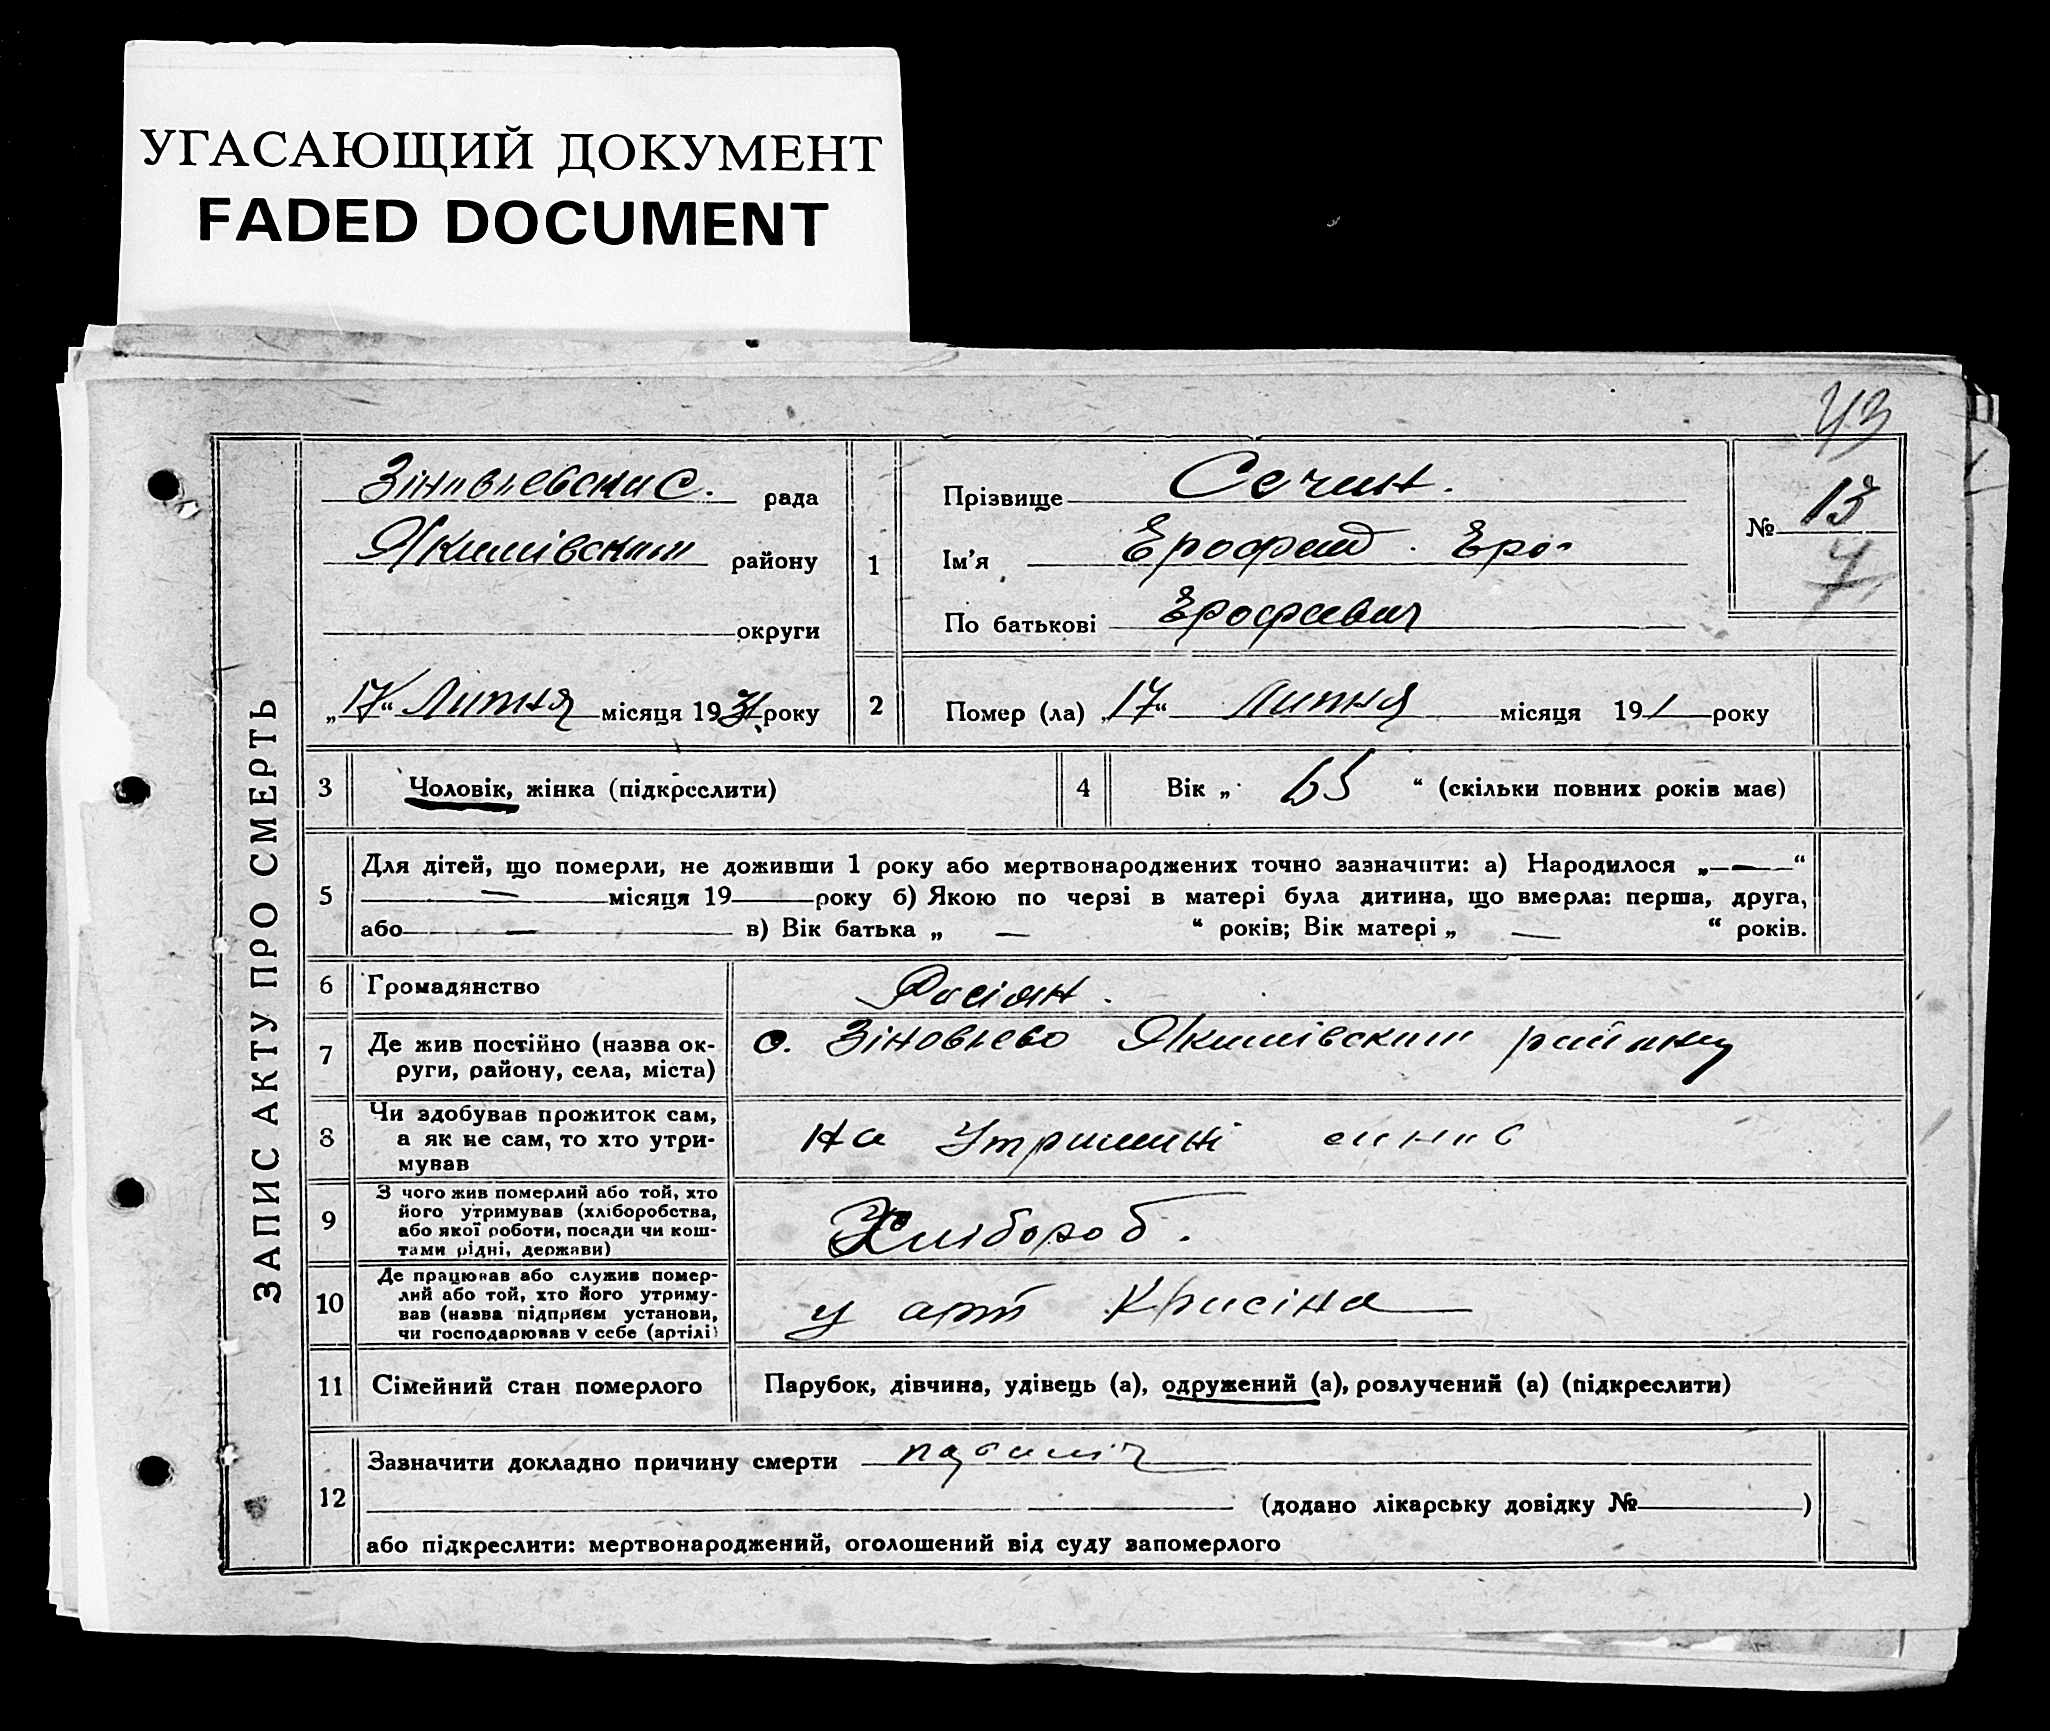 УГАСАЮЩИЙ ДОКУМЕНТ
FADED DOCUMENT
43
ЗАПИС АКТУ ПРО СМЕРТЬ
Зіновьевска с. рада
Якимівским району
округи
„17“ Липня місяця 1931 року
1
Прізвище Сечин.
Ім'я Ерофей. Еро-
По батькові Ерофеевич
№ 13
2 Помер (ла) „17“ Липня місяця 191 року
3 Чоловік, жінка (підкреслити)
4 Вік „ 65 “ (скільки повних років має)
5 Для дітей, що померли, не доживши 1 року або мертвонароджених точно зазначити: а) Народилося „—“
— місяця 19 року б) Якою по черзі в матері була дитина, що вмерла: перша, друга,
або — в) Вік батька „ — “ років; Вік матері „ — “ років.
6 Громадянство Росіян.
7 Де жив постійно (назва ок-
руги, району, села, міста) с. Зіновьево Якимівским району
8 Чи здобував прожиток сам,
а як не сам, то хто утри-
мував на Утримині
9 З чого жив померлий або той, хто
його утримував (хліборобства,
або якої роботи, посади чи кош-
тами рідні, держави) Хлібороб.
10 Де працював або служив помер-
лий або той, хто його утриму-
вав (назва підприєм установи,
чи господарював у себе (артілі) у арт
11 Сімейний стан померлого Парубок, дівчина, удівець (а), одружений (а), розлучений (а) (підкреслити)
12 Зазначити докладно причину смерти
(додано лікарську довідку № )
або підкреслити: мертвонароджений, оголошений від суду запомерлого